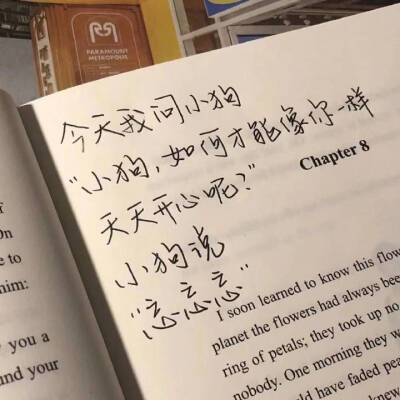 PARAMOUNT
METROPOLIS
今天我问小狗
“小狗,如何才能像你一样
天天开心呢?”
小狗说
“忘忘忘”
On
e to
him:
you a
nd your
Chapter 8
I soon learned to know this flow
planet the flowers had always bee
ring of petals; they took up no
nobody. One morning they w
ld have faded peac
knew